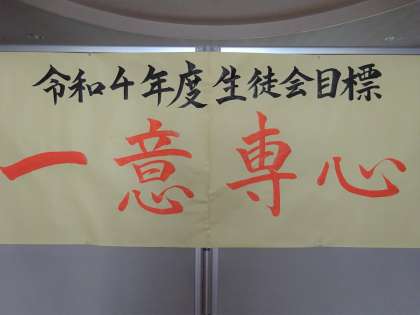 令和4年度生徒会目標
一意専心